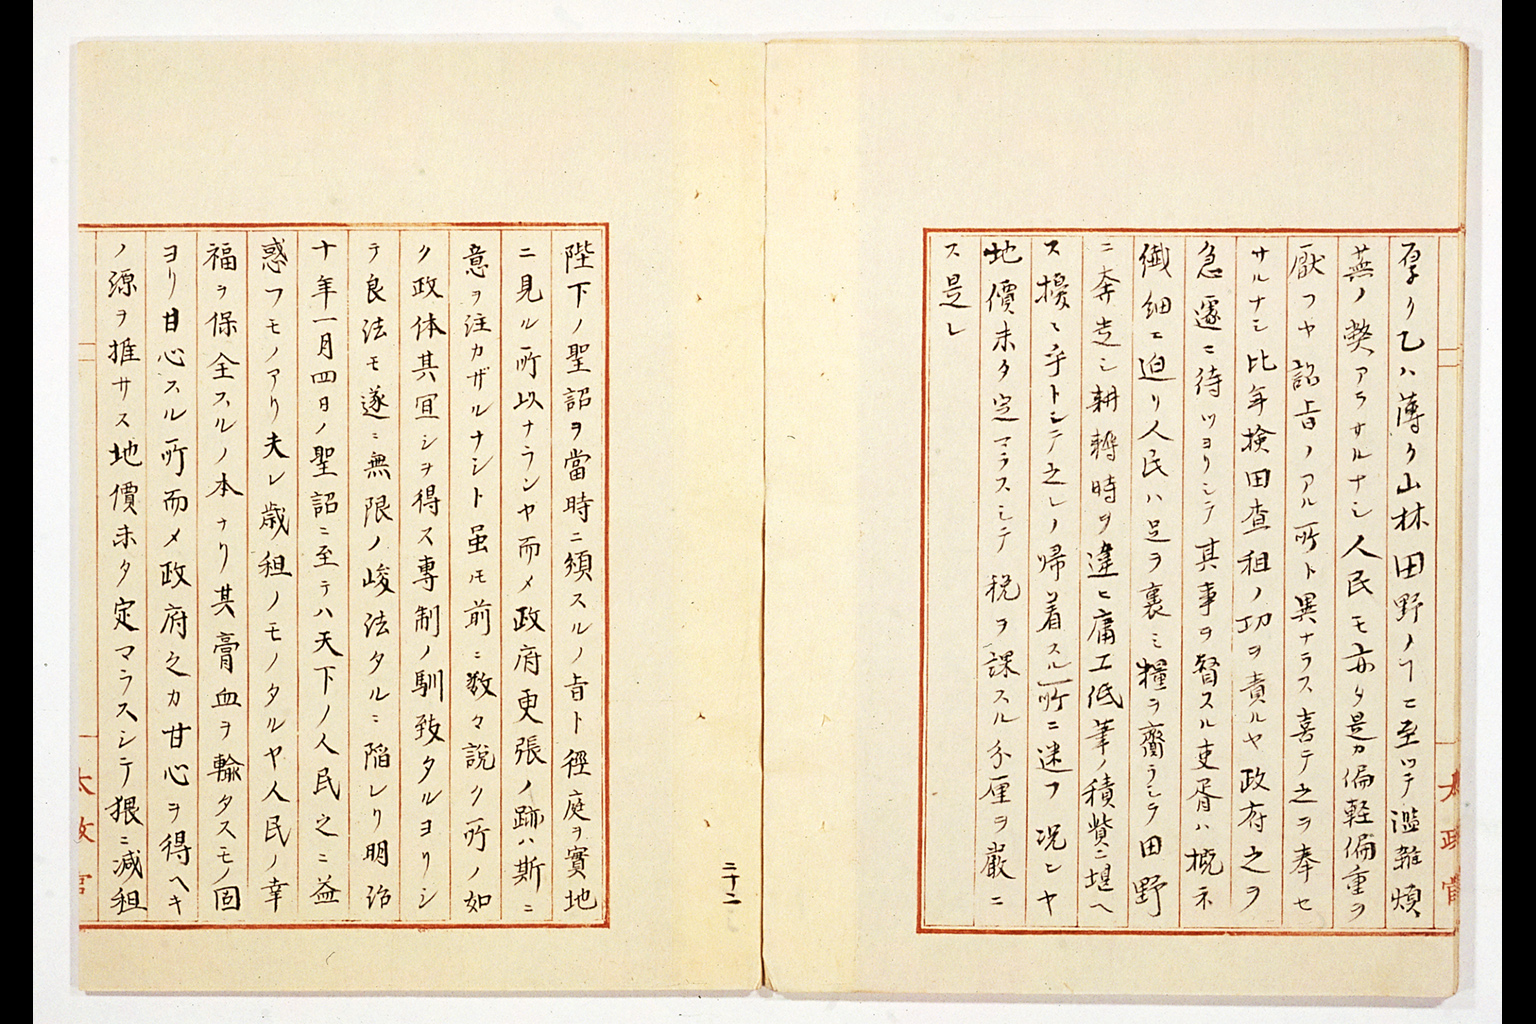 厚ク乙ハ薄ク山林田野ノ丁ニ至ツテ濫雑煩
蕪ノ獘アラサルナシ人民モ亦タ是カ偏軽偏重ヲ
厭フヤ詔旨ノアル所ト異ナラス喜テ之ヲ奉セ
サルナシ比年検田査租ノ功ヲ責ルヤ政府之ヲ
急遽ニ待ツヨリシテ其事ヲ督スル吏胥ハ概ネ
繊細ニ迫リ人民ハ足ヲ裹ミ糧ヲ齎ラシテ田野
ニ奔走シ耕耨時ヲ違ヒ庸工低筆ノ積費ニ堪ヘ
ス擾々乎トシテ之レノ帰着スル所ニ迷フ況ンヤ
地價未タ定マラスシテ税ヲ課スル分厘ヲ厳ニ
ス是レ
陛下ノ聖詔ヲ當時ニ頒スルノ旨ト徑庭ヲ實地
ニ見ル所以ナランヤ而メ政府更張ノ跡ハ斯ニ
意ヲ注カザルナシト虽ヒ前ニ数々説ク所ノ如
ク政体其宜シヲ得ス専制ノ馴致タルヨリシ
テ良法モ遂ニ無限ノ峻法タルニ陥レリ明治
十年一月四日ノ聖詔ニ至テハ天下ノ人民之ニ益
惑フモノアリ夫レ歳租ノモノタルヤ人民ノ幸
福ヲ保全スルノ本ナリ其膏血ヲ輸タスモノ固
ヨリ甘心スル所而メ政府之カ甘心ヲ得ヘキ
ノ源ヲ推サス地價未タ定マラスシテ猥ニ減租
二十二
太政官
太政官